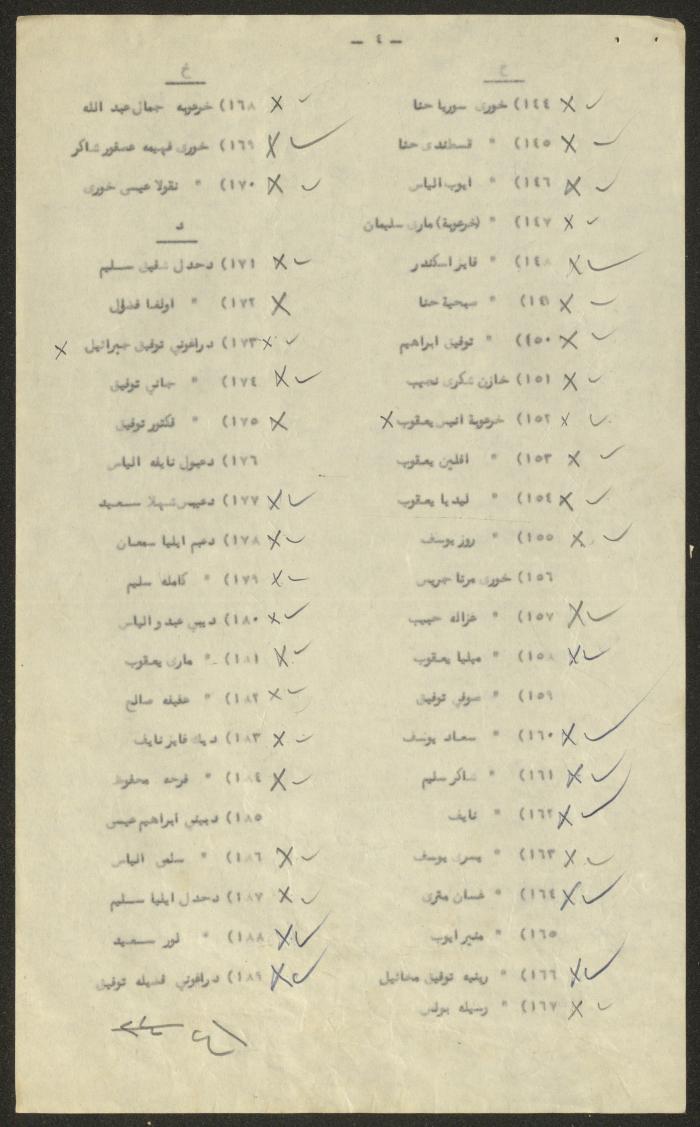 — ٤ —
خ
١٤٤) خوری سوریا حنا
١٤٥) " قسطندی حنا
١٤٦) " ایوب الیاس
١٤٧) " (خرعوبة) ماری سلیمان
١٤٨) " فایز اسکندر
١٤٩) " سبحیة حنا
١٥٠) " توفیق ابراهیم
١٥١) خازن شکری نجیب
١٥٢) خرعوبة انیس یعقوب
١٥٣) " افلین یعقوب
١٥٤) " لیدیا یعقوب
١٥٥) " روز یوسف
١٥٦) خوری مرتا جریس
١٥٧) " غزاله حبیب
١٥٨) " میلیا یعقوب
١٥٩) " صوفی توفیق
١٦٠) " سعاد یوسف
١٦١) " شاکر سلیم
١٦٢) " نایف
١٦٣) " یسری یوسف
١٦٤) " غسان متری
١٦٥) " منیر ایوب
١٦٦) " رینیه توفیق مخائیل
١٦٧) " رسیله بولس
خ
١٦٨) خرعوبه جمال عبد الله
١٦٩) خوری فهیمه عصفور شاکر
١٧٠) " نقولا عیسی خوری
د
١٧١) دحدل شفیق سلیم
١٧٢) " اولغا فضلول
١٧٣) دراغونی توفیق جبرائیل
١٧٤) " جانی توفیق
١٧٥) " فکتور توفیق
١٧٦) دعبول نایفه الیاس
١٧٧) دعیبس شهلا سعید
١٧٨) دعیم ایلیا سمعان
١٧٩) " کامله سلیم
١٨٠) دیبی عبدو الیاس
١٨١) " ماری یعقوب
١٨٢) " عفیفه صالح
١٨٣) دیك فایز نایف
١٨٤) " فرحه محفوظ
١٨٥) دیبني ابراهیم عیسی
١٨٦) " سلمی الیاس
١٨٧) دحدل ایلیا سلیم
١٨٨) " نور سعید
١٨٩) دراغونی فضیله توفیق